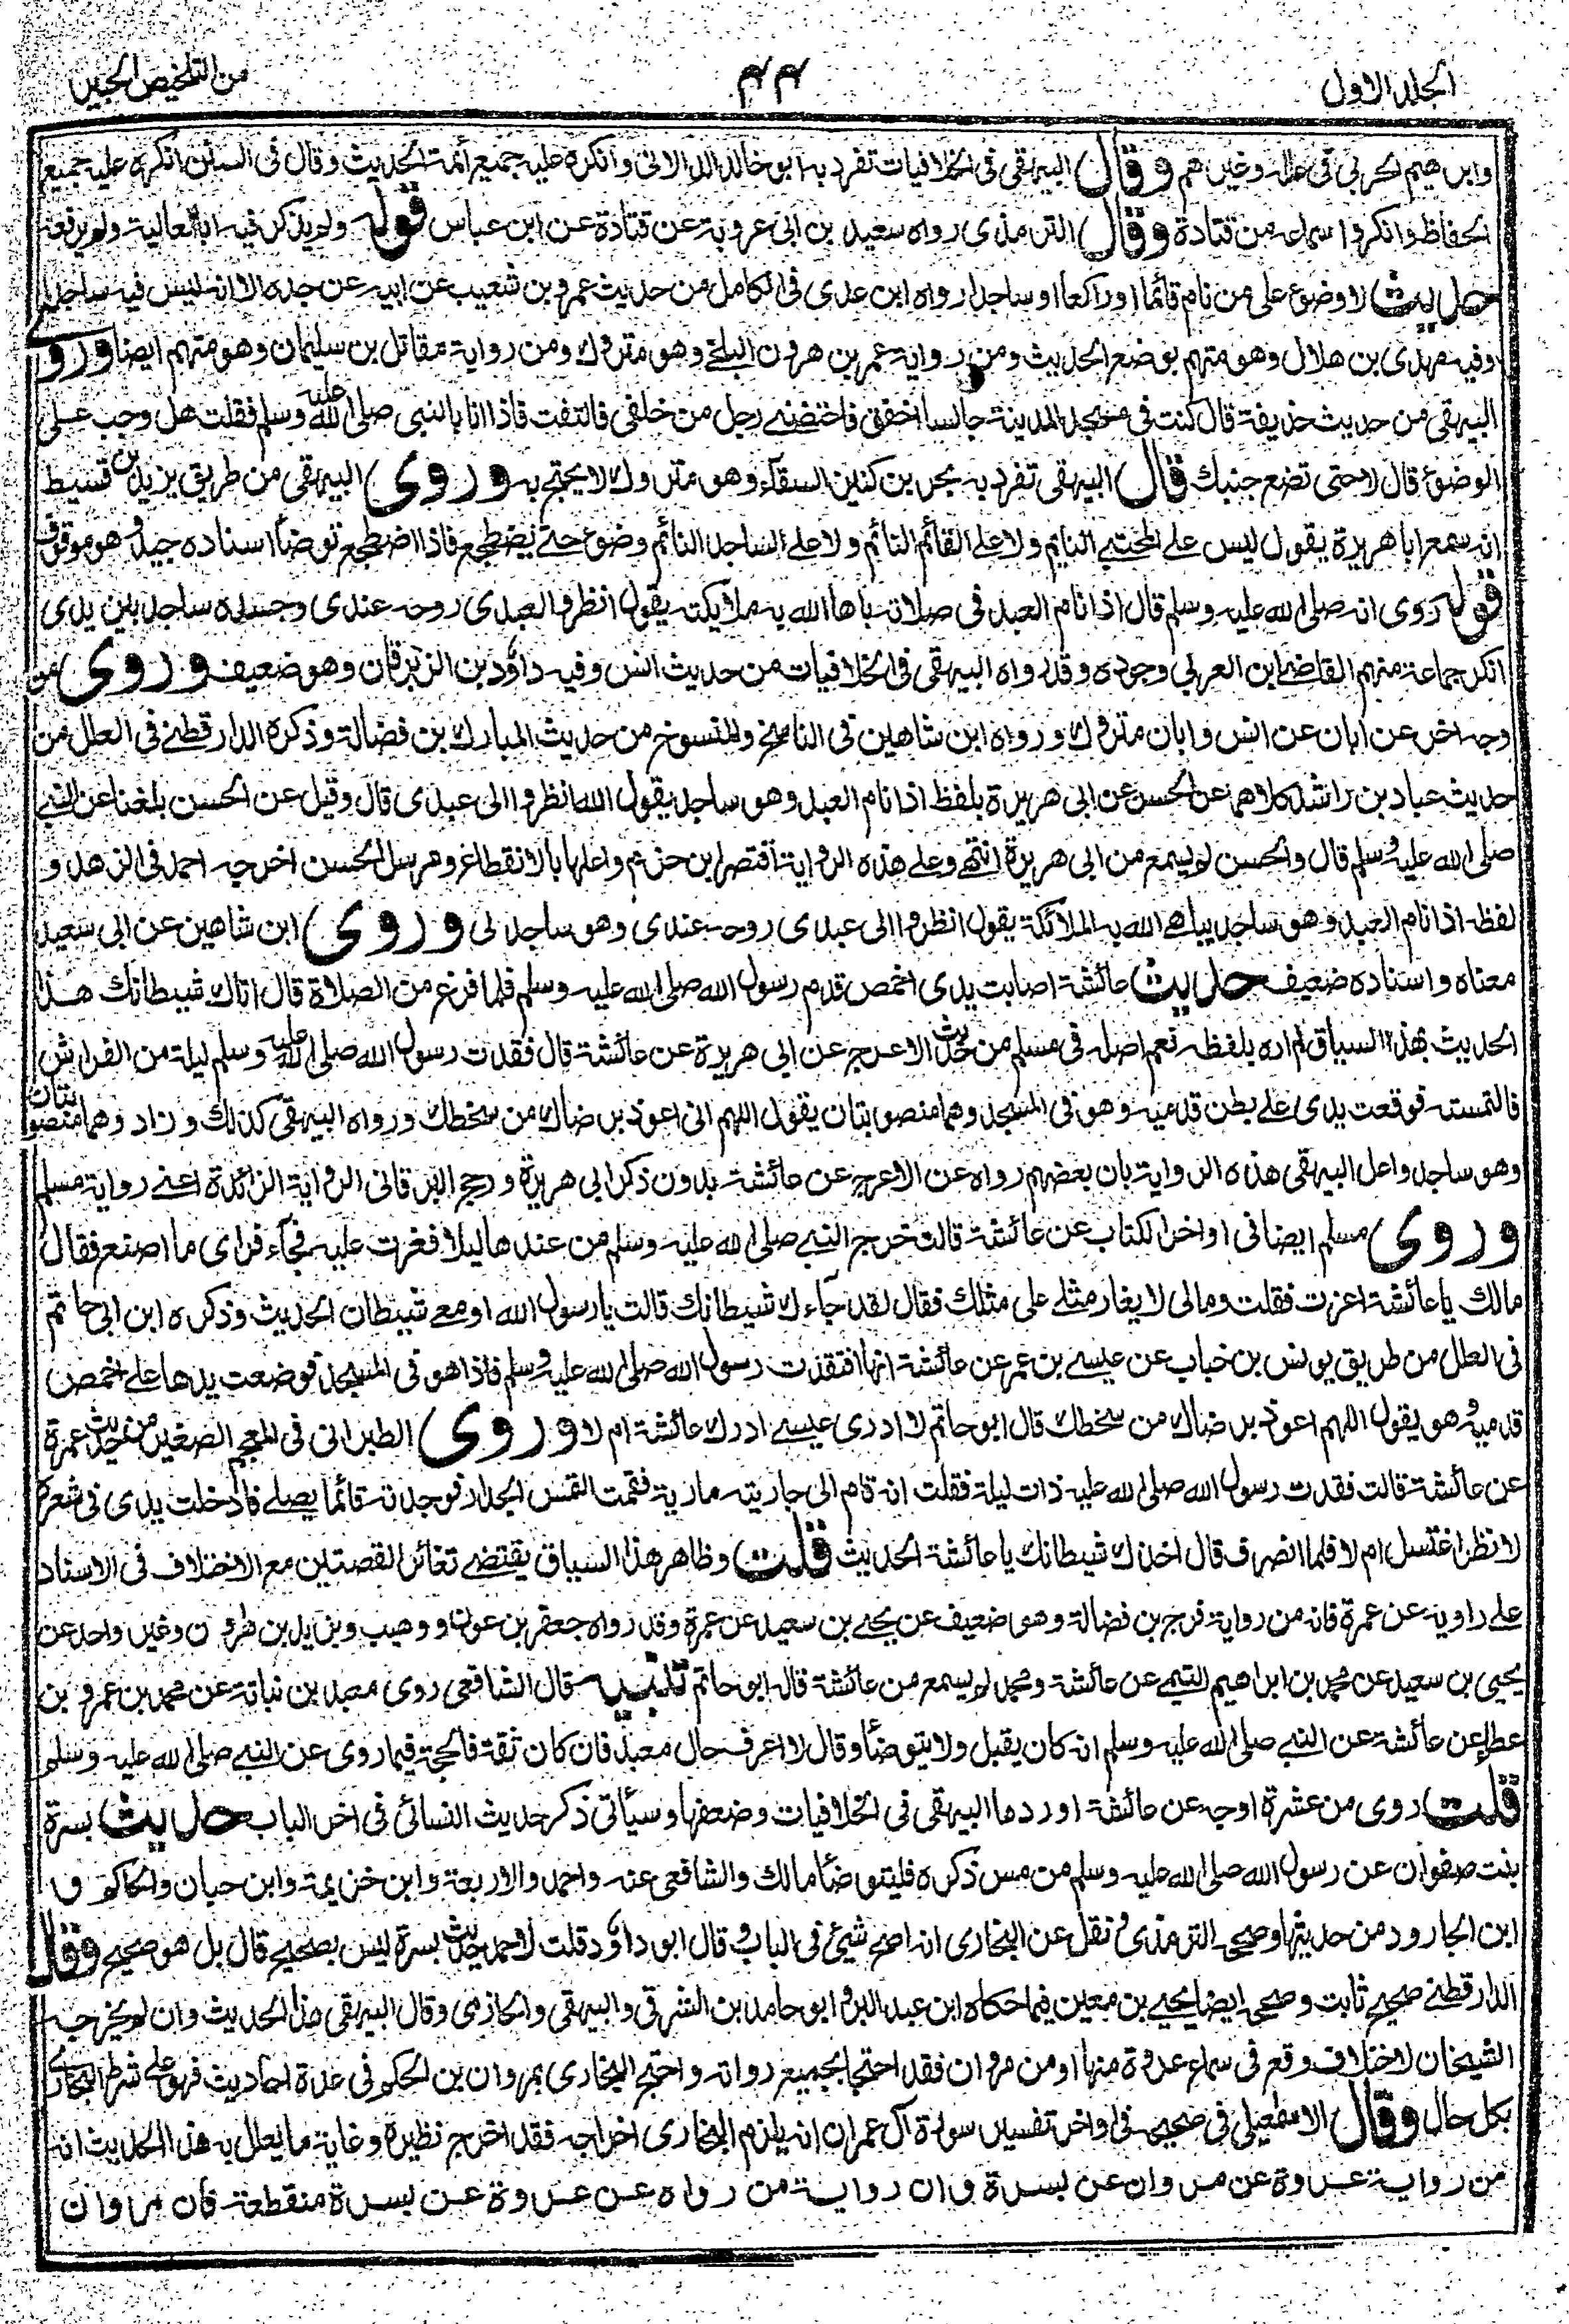 المجلد الاول
٤٤
من التلخيص الحبير
وابرهيم الحربي في علله وغيرهم وقال البيهقي في الخلافيات تفرد به ابو خالد الدالاني وانكره عليه جميع أئمة الحديث وقال في السنن انكره عليه جميع
الحفاظ وانكروا سماعه من قتادة وقال الترمذي رواه سعيد بن ابي عروبة عن قتادة عن ابن عباس قوله ولم يذكر فيه ابا العالية ولم يرفعه
حديث لا وضوء على من نام قائما او راكعا او ساجدا رواه ابن عدي في الكامل من حديث عمرو بن شعيب عن ابيه عن جده الا انه ليس فيه ساجدا
وفيه مهدي بن هلال وهو متهم بوضع الحديث ومن رواية عمر بن هرون البلخي وهو متروك ومن رواية مقاتل بن سليمان وهو متهم ايضا وروى
البيهقي من حديث حذيفة قال كنت في مسجد المدينة جالسا اخفق فاحتضنني رجل من خلفي فالتفت فاذا انا بالنبي صلى الله عليه وسلم فقلت هل وجب علي
الوضوء قال لا حتى تضع جنبك قال البيهقي تفرد به بحر بن كنيز السقاء وهو متروك لا يحتج به وروى البيهقي من طريق يزيد بن قسيط
انه سمع ابا هريرة يقول ليس على المحتبي النائم ولا على القائم النائم ولا على الساجد النائم وضوء حتى يضطجع فاذا اضطجع توضأ اسناده جيد وهو موقوف
قوله روى انه صلى الله عليه وسلم قال اذا نام العبد في صلاته باها الله به ملايكته يقول انظروا لعبدي روحه عندي وجسده ساجد بين يدي
انكر جماعة منهم القاضي ابن العربي وجوده وقد رواه البيهقي في الخلافيات من حديث انس وفيه داؤد بن الزبرقان وهو ضعيف وروى من
وجه اخر عن ابان عن انس وابان متروك ورواه ابن شاهين في الناسخ والمنسوخ من حديث المبارك بن فضالة وذكره الدارقطني في العلل من
حديث عباد بن راشد كلاهما عن الحسن عن ابي هريرة بلفظ اذا نام العبد وهو ساجد يقول الله انظروا الى عبدي قال وقيل عن الحسن بلغنا عن النبي
صلى الله عليه وسلم قال والحسن لم يسمع من ابي هريرة انتهى وعلى هذه الرواية اقتصر ابن حزم واعلها بالانقطاع ومرسل الحسن اخرجه احمد في الزهد و
لفظه اذا نام العبد وهو ساجد يباهي الله به الملائكة يقول انظروا الى عبدي روحه عندي وهو ساجد لي وروى ابن شاهين عن ابي سعيد
معناه واسناده ضعيف حديث عائشة اصابت يدي اخمص قدم رسول الله صلى الله عليه وسلم فلما فرغ من الصلاة قال اتاك شيطانك هذا
الحديث بهذا السياق لم اره بلفظه نعم اصله في مسلم من حديث الاعرج عن ابي هريرة عن عائشة قال فقدت رسول الله صلى الله عليه وسلم ليلة من الفراش
فالتمسته فوقعت يدي على بطن قدميه وهو في المسجد وهما منصوبتان يقول اللهم اني اعوذ برضاك من سخطك ورواه البيهقي كذلك وزاد وهما منصوبتان
وهو ساجد واعل البيهقي هذه الرواية بان بعضهم رواه عن الاعرج عن عائشة بدون ذكر ابي هريرة ورجح البرقاني الرواية الزائدة اعني رواية مسلم
وروى مسلم ايضا في اواخر الكتاب عن عائشة قالت خرج النبي صلى الله عليه وسلم من عندها ليلا فغرت عليه فجاء فراى ما اصنع فقال
مالك يا عائشة اغرت فقلت ومالي لا يغار مثلي على مثلك فقال لقد جاءك شيطانك قالت يا رسول الله او معي شيطان الحديث وذكره ابن ابي حاتم
في العلل من طريق يونس بن خباب عن عيسى بن عمر عن عائشة انها افتقدت رسول الله صلى الله عليه وسلم فاذا هو في المسجد فوضعت يدها على اخمص
قدميه وهو يقول اللهم اعوذ برضاك من سخطك قال ابو حاتم لا ادري عيسى ادرك عائشة ام لا وروى الطبراني في المعجم الصغير من حديث عمرة
عن عائشة قالت فقدت رسول الله صلى الله عليه ذات ليلة فقلت انه قام الى جاريته مارية فقمت التمس الجدار فوجدته قائما يصلي فادخلت يدي في شعره
لانظر اغتسل ام لا فلما انصرف قال اخذك شيطانك يا عائشة الحديث قلت وظاهر هذا السياق يقتضي تغائر القصتين مع الاختلاف في الاسناد
على راويه عن عمرة فانه من رواية فرج بن فضالة وهو ضعيف عن يحيى بن سعيد عن عمرة وقد رواه جعفر بن عون ووهيب ويزيد بن هرون وغير واحد عن
يحيى بن سعيد عن محمد بن ابراهيم التيمي عن عائشة ومحمد لم يسمع من عائشة قاله ابو حاتم تنبيه قال الشافعي روى معبد بن نباتة عن محمد بن عمرو بن
عطاء عن عائشة عن النبي صلى الله عليه وسلم انه كان يقبل ولا يتوضأ وقال لا اعرف حال معبد فان كان ثقة فالحجة فيما روى عن النبي صلى الله عليه وسلم
قلت روى من عشرة اوجه عن عائشة اوردها البيهقي في الخلافيات وضعفها وسيأتي ذكر حديث النسائي في اخر الباب حديث بسرة
بنت صفوان عن رسول الله صلى الله عليه وسلم من مس ذكره فليتوضأ مالك والشافعي عنه واحمد والاربعة وابن خزيمة وابن حبان والحاكم و
ابن الجارود من حديثها وصححه الترمذي ونقل عن البخاري انه اصح شيئ في الباب وقال ابو داؤد قلت لاحمد حديث بسرة ليس بصحيح قال بل هو صحيح وقال
الدارقطني صحيح ثابت وصححه ايضا يحيى بن معين فيما حكاه ابن عبد البر وابو حامد بن الشرقي والبيهقي والحازمي وقال البيهقي هذا الحديث وان لم يخرجه
الشيخان لاختلاف وقع في سماع عروة منها او من مروان فقد احتجا بجميع رواته واحتج البخاري بمروان بن الحكم في عدة احاديث فهو على شرط البخاري
بكل حال وقال الاسمعيلي في صحيحه في اواخر تفسير سورة آل عمران انه يلزم البخاري اخراجه فقد اخرج نظيره وغاية ما يعلل به هذا الحديث انه
من رواية عروة عن مروان عن بسرة وان رواية من رواه عن عروة عن بسرة منقطعة فان مروان